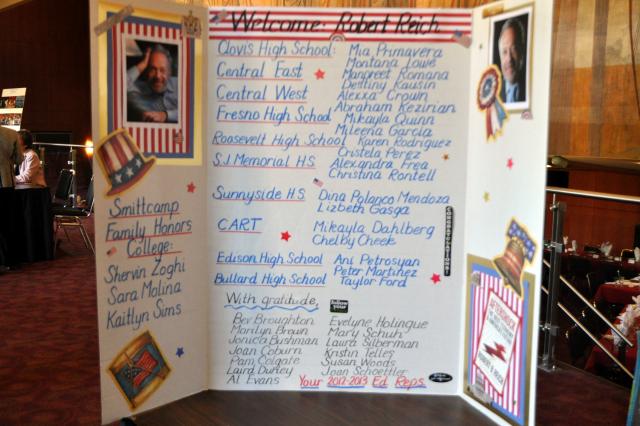 Welcome: Robert Reich
Clovis High School: Mia Primavera
Montana Lowe
Central East Manpreet Romana
Destiny Kausin
Central West Alexxa Crown
Abraham Kezirian
Fresno High School Mikayla Quinn
Mileena Garcia
Roosevelt High School Karen Rodriguez
Cristela Perez
S.J. Memorial H.S. Alexandra Frea
Christina Rontell
Sunnyside H.S. Dina Polanco Mendoza
Lizbeth Gasga
CART Mikayla Dahlberg
Chelby Cheek
Edison High School Ani Petrosyan
Peter Martinez
Bullard High School Taylor Ford
With gratitude,
Bev Broughton Evelyne Holingue
Marilyn Brown Mary Schuh
Jonica Bushman Laura Silberman
Joan Coburn Kristin Telles
Pam Colgate Susan Woods
Laird Durley Joan Schoettler
Al Evans Your 2012-2013 Ed. Reps.
Smittcamp
Family Honors
College:
Shervin Zoghi
Sara Molina
Kaitlyn Sims
AFTERSHOCK
ROBERT B. REICH